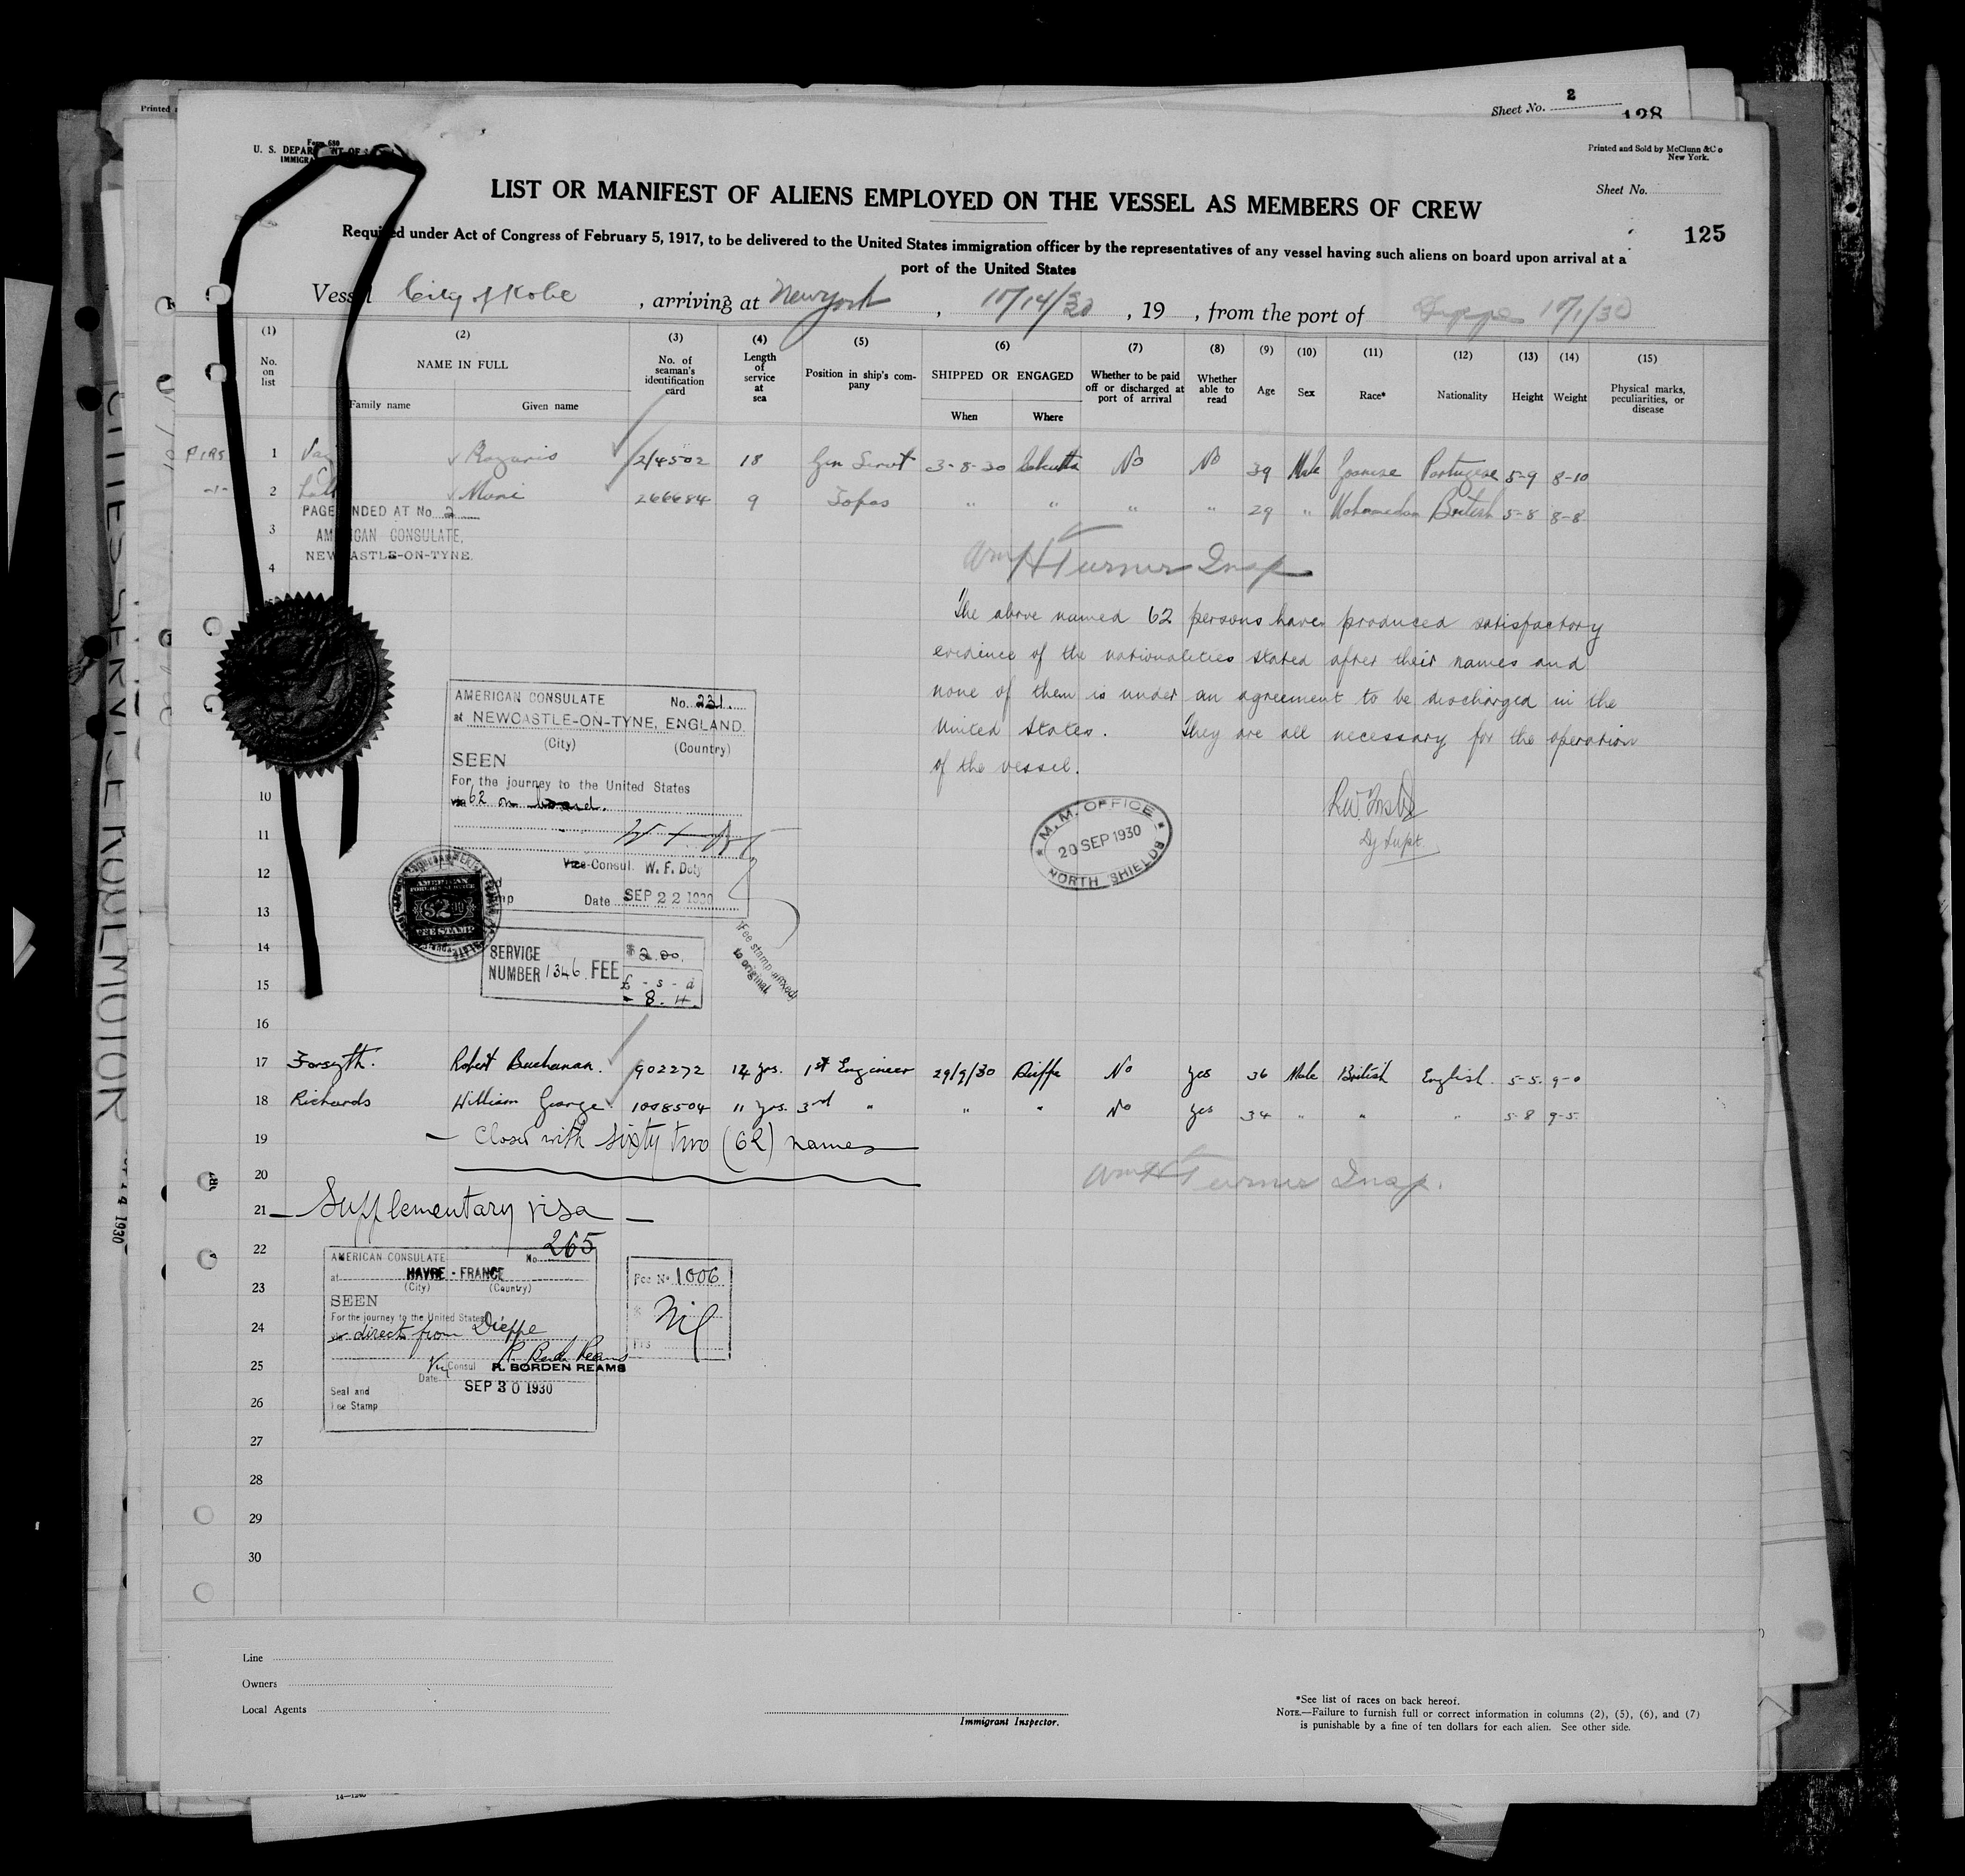 Printed
Sheet No. 2
128
Form 680
U. S. DEPAR NT OF
IMMIGRA
Printed and Sold by McClunn & Co
New York.
Sheet No.
LIST OR MANIFEST OF ALIENS EMPLOYED ON THE VESSEL AS MEMBERS OF CREW
125
Required under Act of Congress of February 5, 1917, to be delivered to the United States immigration officer by the representatives of any vessel having such aliens on board upon arrival at a
port of the United States
Vessel City of Kobe , arriving at New York , 10/14/30 , 19 , from the port of Dieppe 10/1/30
(1) (2) (3) (4) (5) (6) (7) (8) (9) (10) (11) (12) (13) (14) (15)
No. on list NAME IN FULL No. of seaman's identification card Length of service at sea Position in ship's company SHIPPED OR ENGAGED Whether to be paid off or discharged at port of arrival Whether able to read Age Sex Race* Nationality Height Weight Physical marks, peculiarities, or disease
Family name Given name When Where
1 Rozario 214502 18 Gen Servt 3-8-30 Calcutta No No 39 Male Goanese Portugese 5-9 8-10
2 Lall Muni 266684 9 Topas " " " " 29 " Mohamedan British 5-8 8-8
PAGE ENDED AT No. 2
3 AMERICAN CONSULATE,
NEWCASTLE-ON-TYNE.
4
Wm H Turner Insp
The above named 62 persons have produced satisfactory
evidence of the nationalities stated after their names and
none of them is under an agreement to be discharged in the
United States. They are all necessary for the operation
of the vessel.
Dy Supt.
M. M. OFFICE
20 SEP 1930
NORTH SHIELDS
AMERICAN CONSULATE No. 221.
at NEWCASTLE-ON-TYNE, ENGLAND.
(City) (Country)
SEEN
For the journey to the United States
via 62 on board.
10
11
Vice-Consul. W. F. Doty
12
Date SEP 22 1930
AMERICAN
FOREIGN SERVICE
$2.00
FEE STAMP
13
14
SERVICE
NUMBER 1346 FEE $2.00.
£ - s - d
- 8. 4.
Fee stamp affixed
to original
15
16
17 Forsyth. Robert Buchanan. 902272 14 yrs. 1st Engineer 29/9/30 Dieppe No Yes 36 Male British English. 5-5. 9-0
18 Richards William George 1008504 11 yrs. 3rd " " " No Yes 34 " " " 5-8 9-5.
19 — Closed with sixty two (62) names —
20
Wm H Turner Insp.
21 — Supplementary visa —
22
AMERICAN CONSULATE No. 265
at HAVRE - FRANCE
(City) (Country)
23
SEEN
For the journey to the United States
24
via direct from Dieppe
25
Consul R. BORDEN REAMS
Date SEP 30 1930
Seal and
Fee Stamp
Fee No 1006
$ Nil
Frs
26
27
28
29
30
Line
Owners
Local Agents
Immigrant Inspector.
*See list of races on back hereof.
NOTE.—Failure to furnish full or correct information in columns (2), (5), (6), and (7)
is punishable by a fine of ten dollars for each alien. See other side.
CITIES SERVICE KOOLMOTOR
14 1930
14—1240